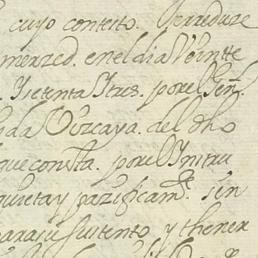 cuyo conteito. Se reduze
merzed. en el dia Veinte
. Y setenta Y tres. por el Señ.
da Vizcaya. del dho
que consta. por el Ynstru
quieta y pazificam.te sin
para su sustento. y thener